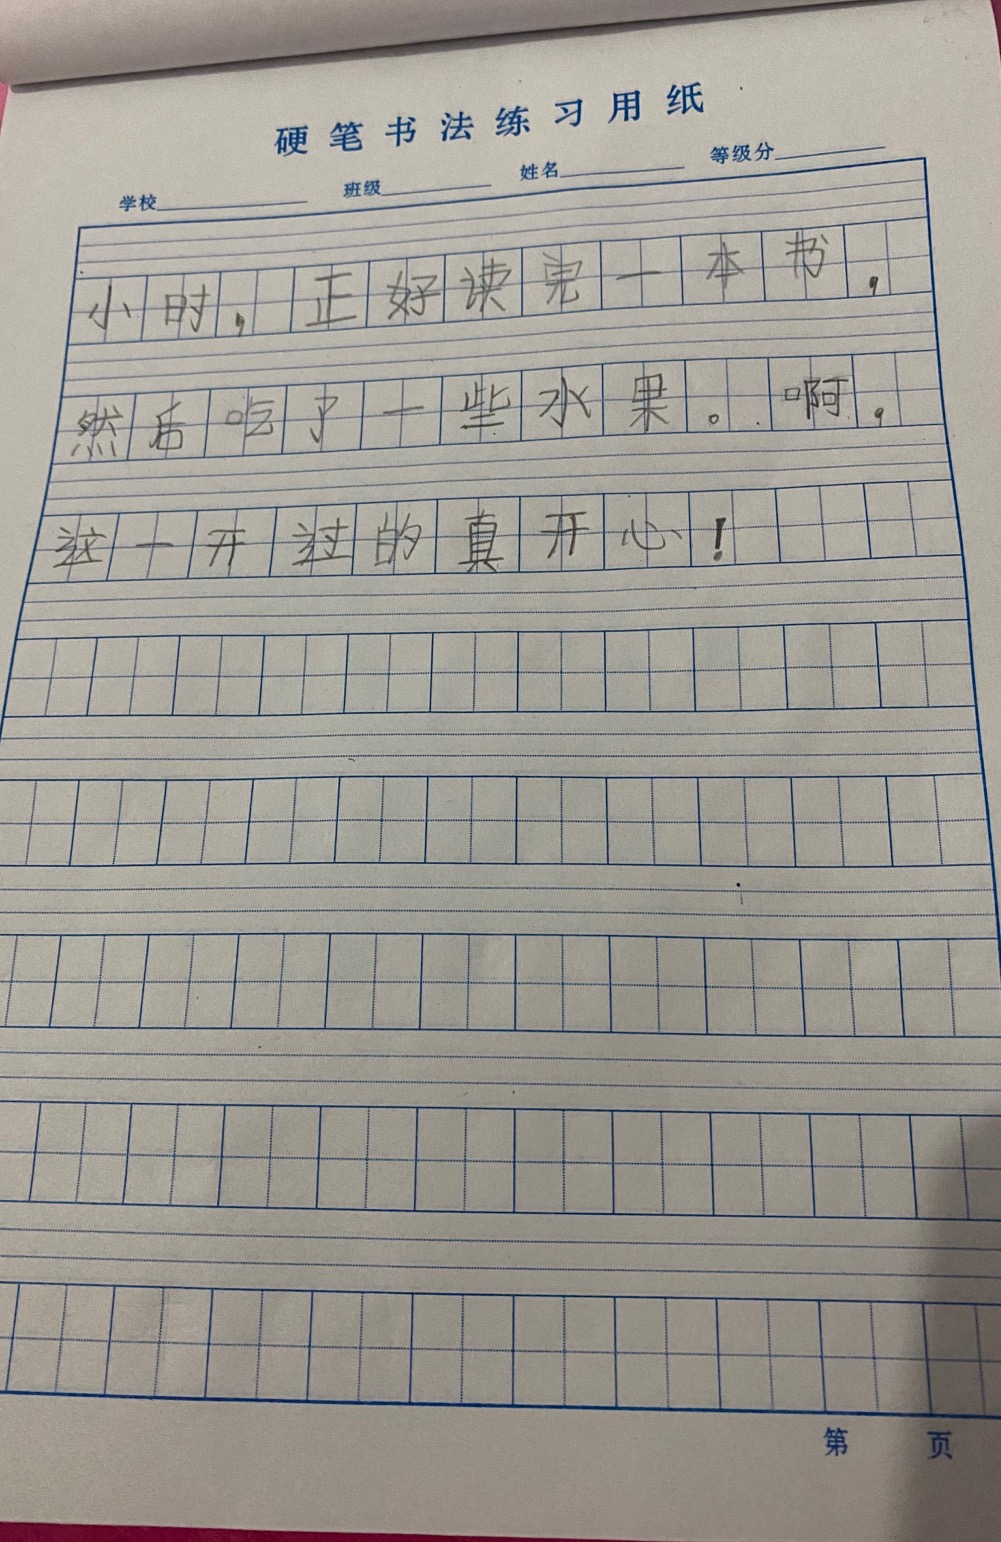 硬笔书法练习用纸
学校 班级 姓名 等级分
小时，正好读完一本书，
然后吃了一些水果。啊，
这一开过的真开心！
第 页